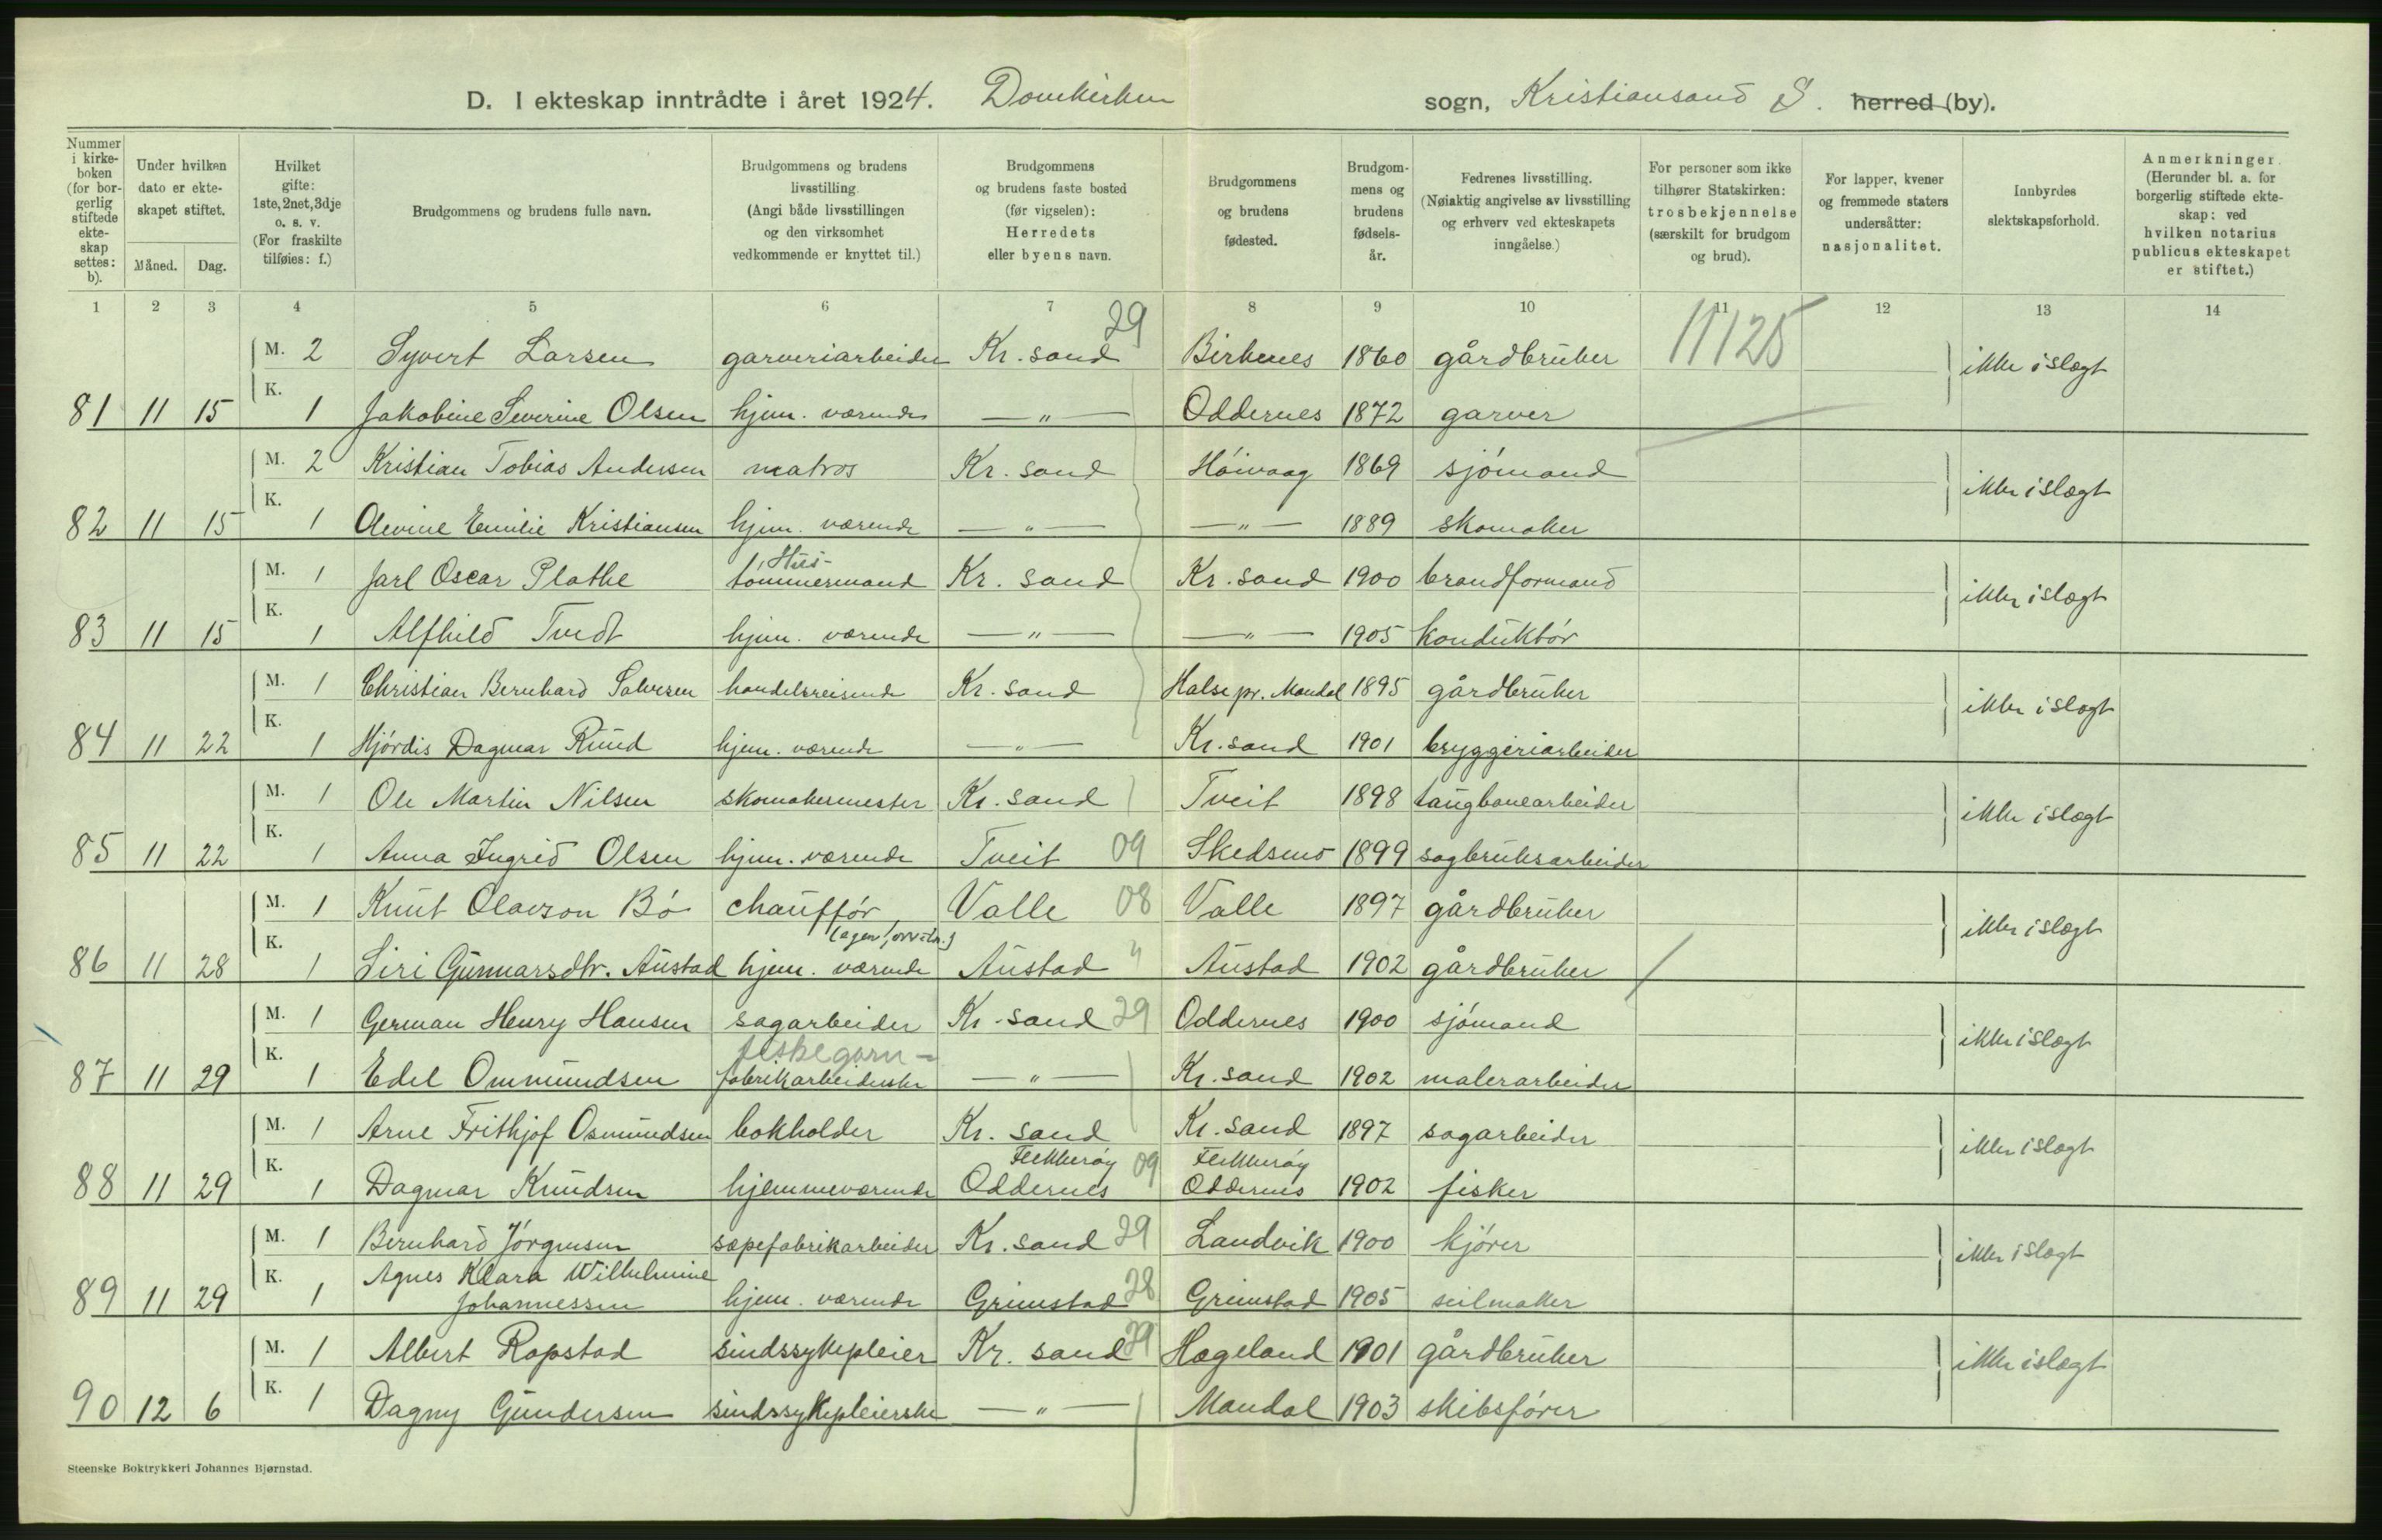 D. I ekteskap inntrådte i året 1924. Domkirken sogn, Kristiansand S. herred (by).
Nummer i kirkeboken (for borgerlig stiftede ekteskap settes: b).
Under hvilken dato er ekteskapet stiftet.
Måned. Dag.
Hvilket gifte: 1ste, 2net, 3dje o. s. v. (For fraskilte tilføies: f.)
Brudgommens og brudens fulle navn.
Brudgommens og brudens livsstilling (Angi både livsstillingen og den virksomhet vedkommende er knyttet til.)
Brudgommens og brudens faste bosted (før vigselen): Herredets eller byens navn.
Brudgommens og brudens fødested.
Brudgommens og brudens fødselsår.
Fedrenes livsstilling. (Nøiaktig angivelse av livsstilling og erhverv ved ekteskapets inngåelse.)
For personer som ikke tilhører Statskirken: trosbekjennelse (særskilt for brudgom og brud).
For lapper, kvener og fremmede staters undersåtter: nasjonalitet.
Innbyrdes slektskapsforhold.
Anmerkninger. (Herunder bl. a. for borgerlig stiftede ekteskap: ved hvilken notarius publicus ekteskapet er stiftet.)
1 2 3 4 5 6 7 8 9 10 11 12 13 14
M. 2 Syvert Larsen garveriarbeider Kr. sand 29 Birkenes 1860 gårdbruker 11125 ikke i slægt
81 11 15 K. 1 Jakobine Severine Olsen hjem. værende —"— Oddernes 1872 garver
M. 2 Kristian Tobias Andersen matros Kr. sand Høivaag 1869 sjømand ikke i slægt
82 11 15 K. 1 Olevine Emilie Kristiansen hjem. værende —"— —"— 1889 skomaker
M. 1 Jarl Oscar Plathe Hus-tømmermand Kr. sand Kr. sand 1900 brandformand ikke i slægt
83 11 15 K. 1 Alfhild Tvedt hjem. værende —"— —"— 1905 konduktør
M. 1 Christian Bernhard Salvesen handelsreisende Kr. sand Halse pr. Mandal 1895 gårdbruker ikke i slægt
84 11 22 K. 1 Hjørdis Dagmar Ruud hjem. værende —"— Kr. sand 1901 bryggeriarbeider
M. 1 Ole Martin Nilsen skomakermester Kr. sand Tveit 1898 taugbanearbeider ikke i slægt
85 11 22 K. 1 Anna Ingrid Olsen hjem. værende Tveit 09 Skedsmo 1899 sagbruksarbeider
M. 1 Knut Olavson Bø chauffør Valle 08 Valle 1897 gårdbruker ikke i slægt
86 11 28 K. 1 Siri Gunnarsdtr. Austad hjem. værende Austad " Austad 1902 gårdbruker
M. 1 German Henry Hansen sagarbeider Kr. sand 29 Oddernes 1900 sjømand ikke i slægt
fiskegarn-
87 11 29 K. 1 Edel Ommundsen fabrikarbeiderske —"— Kr. sand 1902 malerarbeider
M. 1 Arne Frithjof Osmundsen bokholder Kr. sand Kr. sand 1897 sagarbeider ikke i slægt
Flekkerøy 09 Flekkerøy
88 11 29 K. 1 Dagmar Knudsen hjemmeværende Oddernes Oddernes 1902 fisker
M. 1 Bernhard Jørgensen sæpefabrikarbeider Kr. sand 29 Landvik 1900 kjører ikke i slægt
Agnes Klara Wilhelmine
89 11 29 K. 1 Johannessen hjem. værende Grimstad 28 Grimstad 1905 seilmaker
M. 1 Albert Rapstad sindssykepleier Kr. sand 29 Hægeland 1901 gårdbruker ikke i slægt
90 12 6 K. 1 Dagny Gundersen sindssykepleierske —"— Mandal 1903 skibsfører
Steenske Boktrykkeri Johannes Bjørnstad.